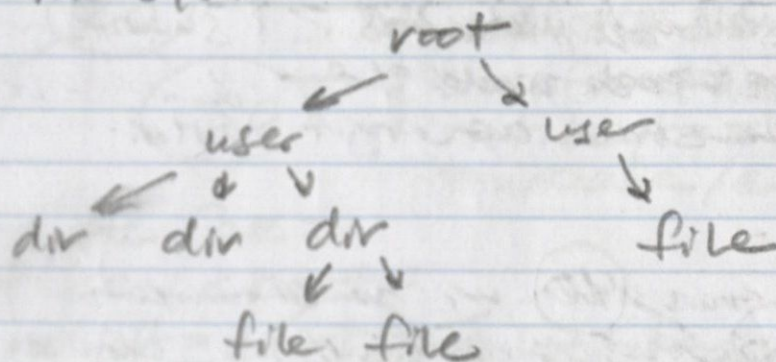 root
user user
dir dir dir file
file file